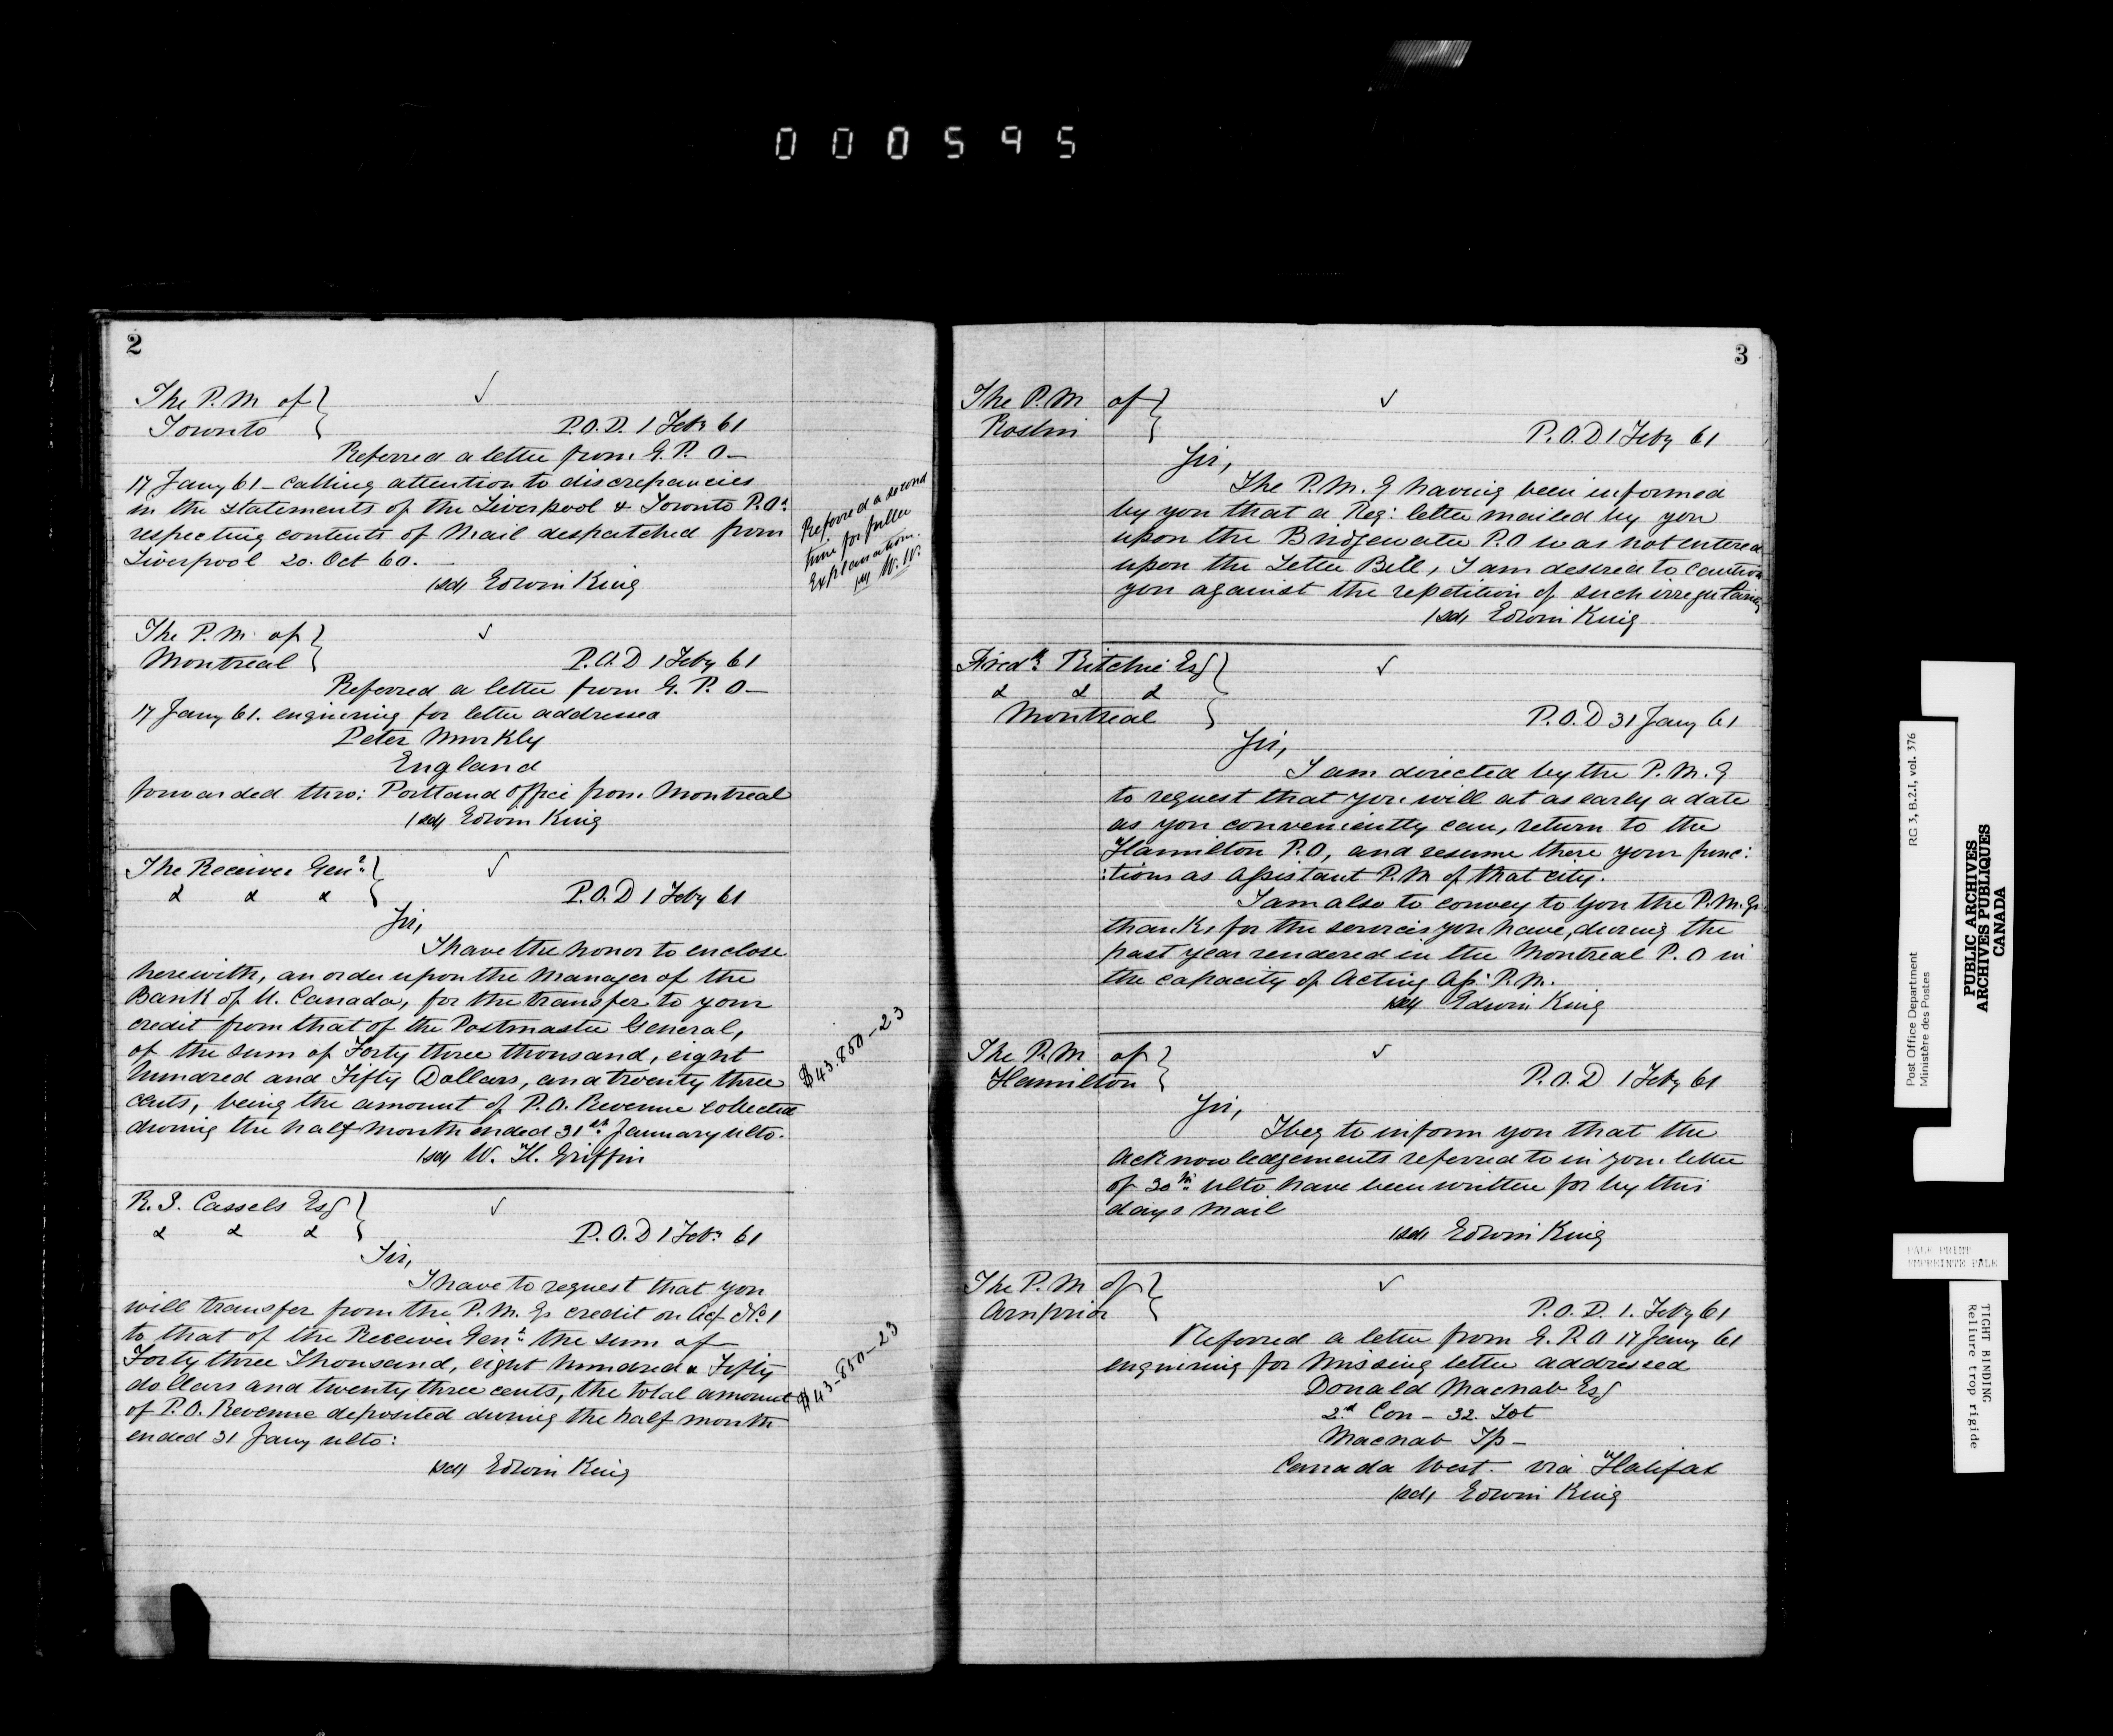 000595
2
The P.M. of
Toronto
P.O.D. 1 Feby 61
Referred a letter from G. P. O—
17 Jany 61 — calling attention to discrepancies
in the statements of the Liverpool & Toronto P.Os
respecting contents of Mail despatched from
Liverpool 20. Oct 60. —
/sd/ Edwin King
Referred a second
time for fuller
Explanation.
W. W.
The P. M. of
Montreal
P.O.D 1 Feby 61
Referred a letter from G. P. O—
17 Jany 61. enquiring for letter addressed
Peter Murkly
England
forwarded thro: Portland office from Montreal
/sd/ Edwin King
The Receiver Genl
& & &
P.O.D 1 Feby 61
Sir,
I have the honor to enclose
herewith, an order upon the Manager of the
Bank of U. Canada, for the transfer to your
credit from that of the Postmaster General,
of the sum of Forty three thousand, eight
hundred and Fifty Dollars, and twenty three
cents, being the amount of P.O. Revenue collected
during the half month ended 31st January ulto.
/sd/ W. H. Griffin
$43.850-23
R. S. Cassels Esq
& & &
P.O.D 1 Feby 61
Sir,
I have to request that you
will transfer from the P. M. Gs credit on Act No 1
to that of the Receiver Genl: the sum of
Forty three Thousand, eight hundred & Fifty
dollars and twenty three cents, the total amount
of P.O. Revenue deposited during the half month
ended 31 Jany ulto:
/sd/ Edwin King
$43-850-23
3
The P.M of
Roslin
P.O.D 1 Feby 61
Sir,
The P.M.G having been informed
by you that a Reg: letter mailed by you
upon the Bridgewater P.O was not entered
upon the Letter Bill, I am desired to caution
you against the repetition of such irregularity
/sd/ Edwin King
Fredk Ritchie Esq
& & &
Montreal
P.O.D 31 Jany 61
Sir,
I am directed by the P.M.G
to request that you will at as early a date
as you conveniently can, return to the
Hamilton P.O, and resume there your func:
:tions as Assistant P.M of that city.
I am also to convey to you the P.M.Gs
thanks for the services you have, during the
past year rendered in the Montreal P.O in
the capacity of Acting As: P.M.
/sd/ Edwin King
The P.M of
Hamilton
P.O.D 1 Feby 61
Sir,
I beg to inform you that the
acknowledgements referred to in your letter
of 30th ulto have been written for by this
days mail
/sd/ Edwin King
The P.M of
Arnprior
P.O.D. 1. Feby 61
Referred a letter from G.P.O 17 Jany 61
enquiring for missing letter addressed
Donald Macnab Esq
2d Con - 32. Lot
Macnab Tp —
Canada West. via "Halifax
/sd/ Edwin King
Post Office Department
Ministère des Postes
RG 3, B.2.1, vol. 376
PUBLIC ARCHIVES
ARCHIVES PUBLIQUES
CANADA
PALE PRINT
EMPREINTE PALE
TIGHT BINDING
Reliure trop rigide